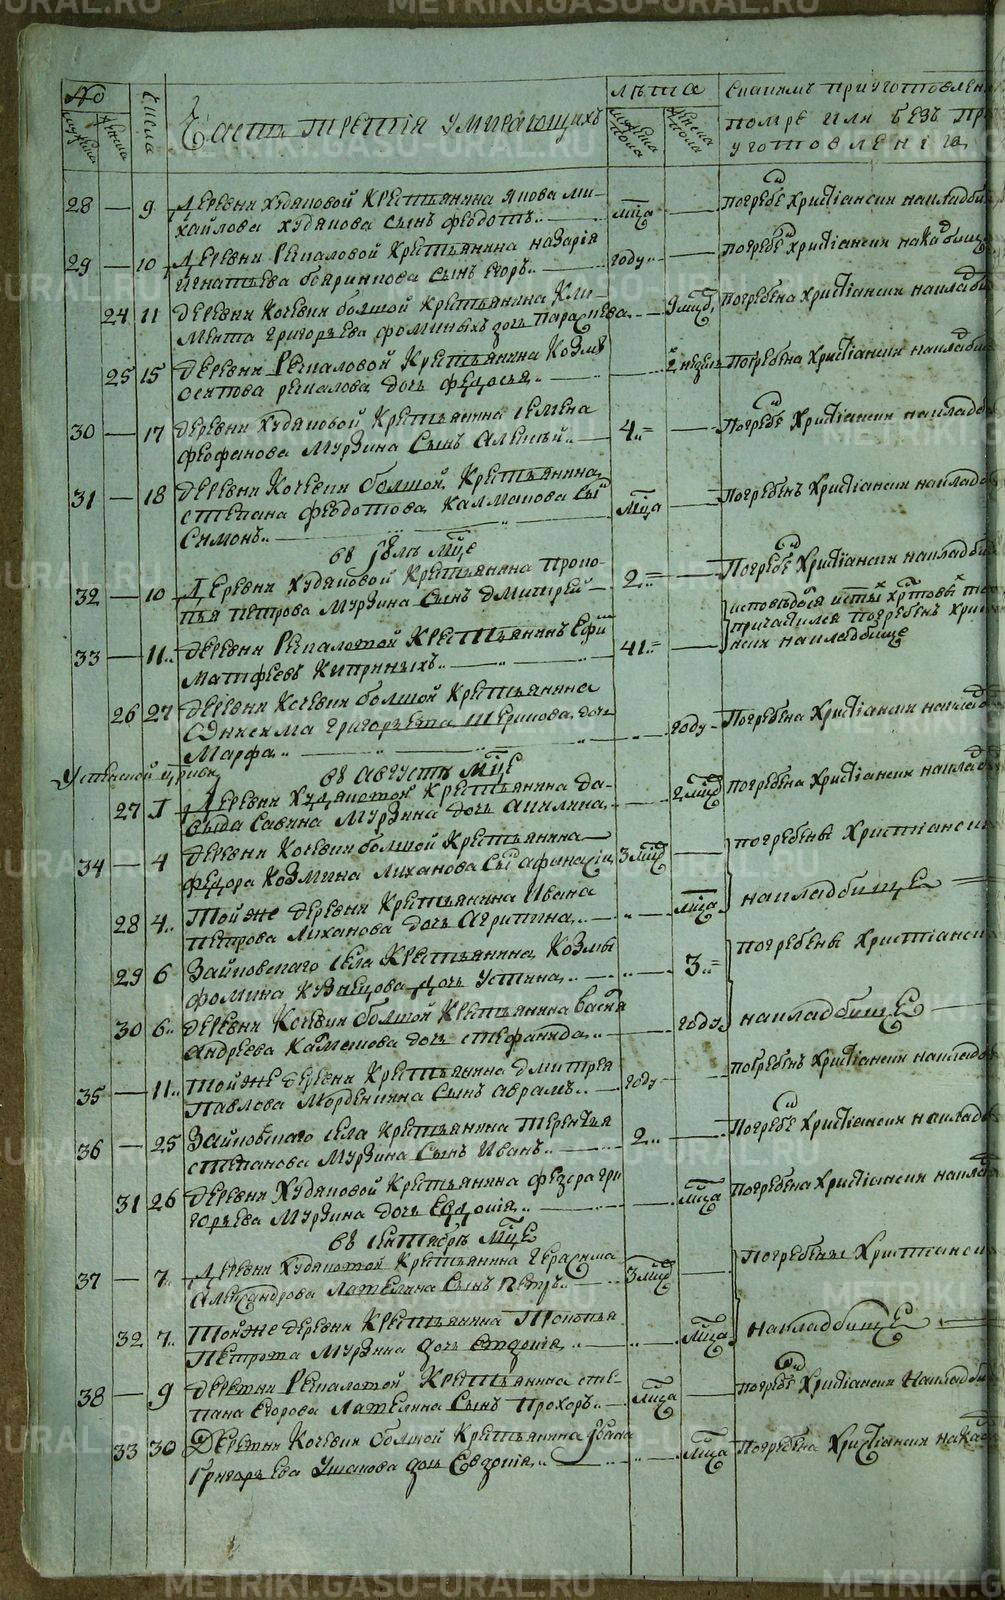 METRIKI.GASO-URAL.RU
№ Числа Часть третїя умирающихъ лѣта
мужеска женска мужеска пола женска пола
помре или безъ
уготовленїя
28 — 9 Деревни Худяковой крестьянина Якова Ми-
хайлова Худякова сынъ Федотъ.. — мца — погребе христїански накладби
29 — 10 Деревни Речкаловой крестьянина Назарїя
Игнатьева сынъ Егоръ.. — году.. — погребе христїански накладбищ
24 11 Деревни Кочевки болшой крестьянина Кли-
мента Григорьева Фоминыхъ дочь Параскева.. — 9 мцъ погребена христїански накладби
25 15 деревни Речкаловой крестьянина Козмы
Осипова Речкалова дочь Федосья.. — 2 недель погребена христїански накладби
30 — 17 деревни Худяковой крестьянина Семена
Феофанова Мурзина сынъ Алексей.. — 4.. — погребе христїански накладби
31 — 18 деревни Кочевки болшой крестьянина
Степана Федотова Калмакова сы
Симонъ.. — мца — погребенъ христїански накладби
въ Юлѣ мце
32 — 10 Деревни Худяковой крестьянина Проко-
пья Петрова Мурзина сынъ Дмитрей — 2.. — погребе христїански накладби
33 — 11.. деревни Речкаловой крестьянинъ Ефи
Матфеевъ Киприныхъ.. — 41.. — исповедася
причастился погребенъ хри
нски накладбище
26 27 деревни Кочевки болшой крестьянина
Онисима Григорьева дочь
Марфа.. — году — погребена христїански накладби
въ Августѣ мце
27 1 Деревни Худяковой крестьянина Да-
выда Савина Мурзина дочь Акилина. — 2 мцъ погребена христїански накладби
34 — 4 деревни Кочевки болшой крестьянина
Федора Козмина Лиханова сы Афанасїи 3 мцъ — погребены христїански
28 4.. Тойже деревни крестьянина Ивана
Петрова Лиханова дочь Агрипина.. — мца накладбище
29 6 Зайковскаго села крестьянина Козмы
Фомина Кузнецова дочь Устина.. — 3.. погребены христїански
30 6.. деревни Кочевки болшой крестьянина Васил
Андреева дочь Стефанида.. — году накладбище
35 — 11.. Тойже деревни крестьянина Дмитрея
Павлова сынъ Аврамъ.. — году погребенъ христїански накладби
36 — 25 Зайковскаго села крестьянина Терентья
Степанова Мурзина сынъ Иванъ.. — 2.. — погребе христїански накладби
31 26 деревни Худяковой крестьянина Федора Гри
горьева Мурзина дочь Евдокїя.. — мца погребена христїански накладби
въ Сентябрѣ мце
37 — 7.. Деревни Худяковой крестьянина Герасима
Александрова сынъ Петръ.. — 3 мцъ — погребены христїански
32 7.. Тойже деревни крестьянина
Петрова Мурзина дочь Евдокїя — мца накладбище
38 — 9 деревни Речкаловой крестьянина Сте-
пана Егорова сынъ Прохоръ.. — мца — погребе христїански накладби
33 30 Деревни Кочевки болшой крестьянина Ивана
Григорьева Ушакова дочь Евдокїя.. — мца погребена христїански накла
METRIKI.GASO-URAL.RU